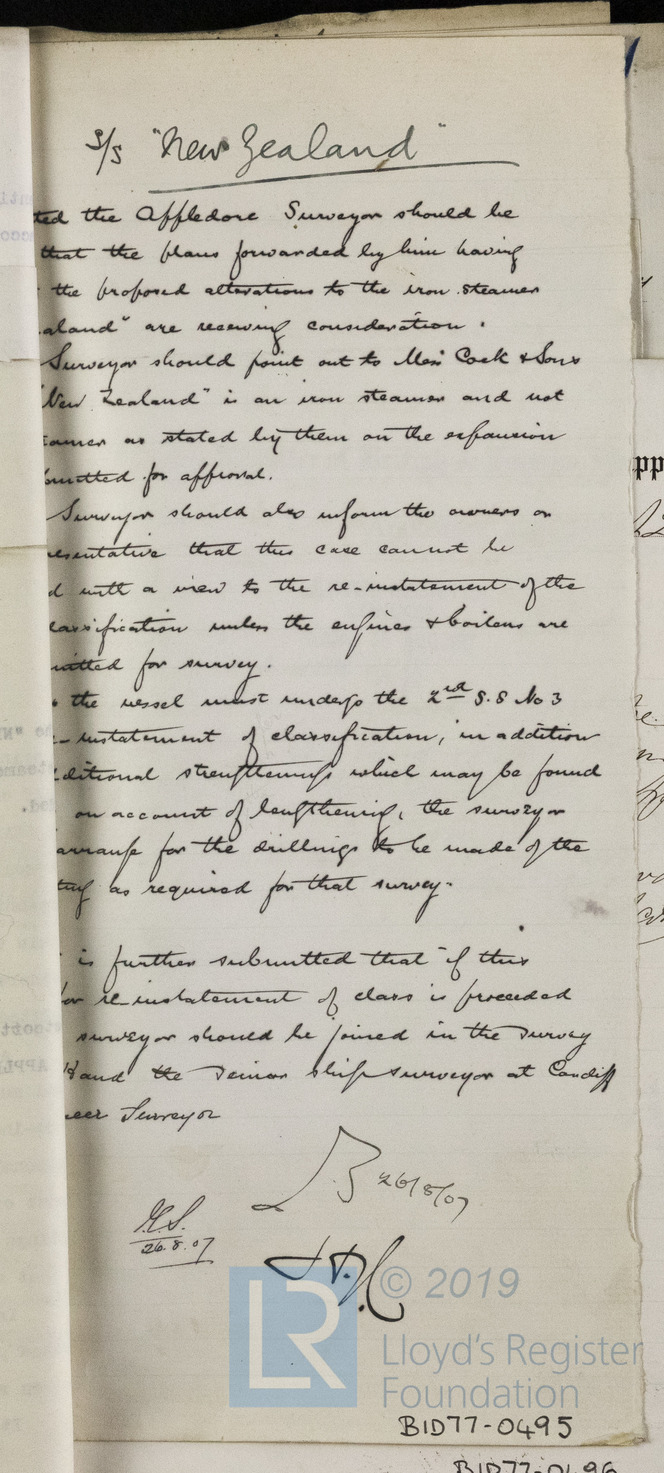 S/S "New Zealand"
ted the Appledore Surveyor should be
that the plans forwarded by him having
the proposed alterations to the iron steamer
aland" are receiving consideration.
Surveyor should point out to Mess Cock & Sons
New Zealand" is an iron steamer and not
eamer as stated by them on the expansion
bmitted for approval.
Surveyor should also inform the owners or
resentative that this case cannot be
d with a view to the re-instatement of the
lassification unless the engines & boilers are
mitted for survey.
the vessel must undergo the 2nd S.S No 3
-instatement of classification, in addition
ditional strengthenings which may be found
on account of lengthening, the surveyor
arrange for the drillings to be made of the
ting as required for that survey.
is further submitted that if this
for re instatement of class is proceeded
surveyor should be joined in the survey
and the Senior ship surveyor at Cardiff
neer Surveyor
26/8/07
26.8.07
LR
© 2019
Lloyd's Register
Foundation
BID77-0495
BID77-0496
pp